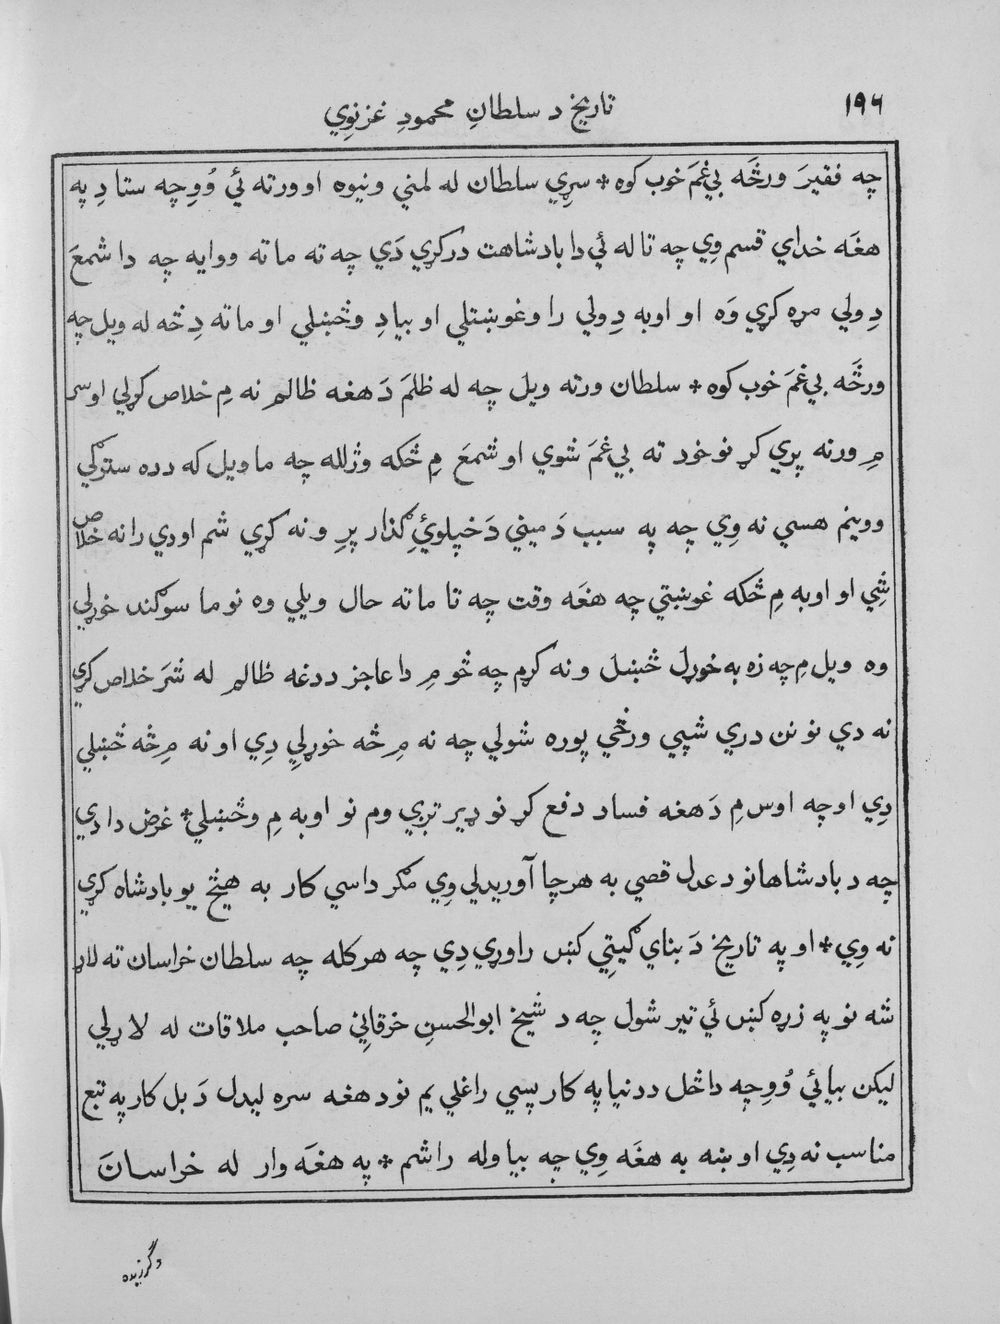 ١٩٦
تاريخ د سلطانِ محمودِ غزنوِي
چه فقيرَ ورځَه بي غمَ خوب کوه * سړِي سلطان له لمني ونيوه او ورته ئي وُوِچه ستا دِ په
هغَه خداي قسم وِي چه تا له ئي دا بادشاهت درکړي دَي چه ته ما ته ووايه چه دا شمعَ
دِ ولي مړه کړي وَه او اوبه دِ ولي را وغوښتلي او بيا دِ وڅښلي او ما ته دِ څه له ويل چه
ورځَه بي غمَ خوب کوه * سلطان ورته ويل چه له ظلمَ دَ هغه ظالم نه مِ خلاص کړلي اوسر
مِ ورنه پري کړ نو خود ته بي غمَ شوي او شمعَ مِ ځکه وژلله چه ما ويل که دده سترکي
ووينم هسي نه وِي چه په سبب دَ ميني دَ خپلوئِ ګذار پرِ ونه کړي شم او دي رانه خلاص
شِي او اوبه مِ ځکه غوښتي چه هغَه وقت چه تا ما ته حال ويلي وه نو ما سوګند خوړلي
وه ويل مِ چه زه به خوړل څښل ونه کړم چه څو مِ دا عاجز د دغه ظالم له شرَ خلاص کړي
نه دي نو نن دري شپي ورځي پوره شولي چه نه مِ څه خوړلِي دِي او نه مِ څه څښلي
دِي او چه اوس مِ دَ هغه فساد دفع کړ نو ډير تږي وم نو اوبه مِ وڅښلي * غرض دا دي
چه د بادشاهانو د عدل قصي به هر چا آوريدلي وِي مګر داسي کار به هيڅ يو بادشاه کړي
نه وِي * او په تاريخ دَ بناي ګيتِي کښ راوړي دِي چه هرکله چه سلطان خراسان ته لاړ
شه نو په زړه کښ ئي تير شول چه د شيخ ابوالحسنِ خرقانِي صاحب ملاقات له لاړلي
ليکن بيائي وُوِچه دا ځل د دنيا په کار پسي راغلي يم نو د هغه سره ليدل دَ بل کار په تبع
مناسب نه دِي او ښه به هغَه وِي چه بيا وله راشم * په هغَه وار له خراسانَ
وګرزيده